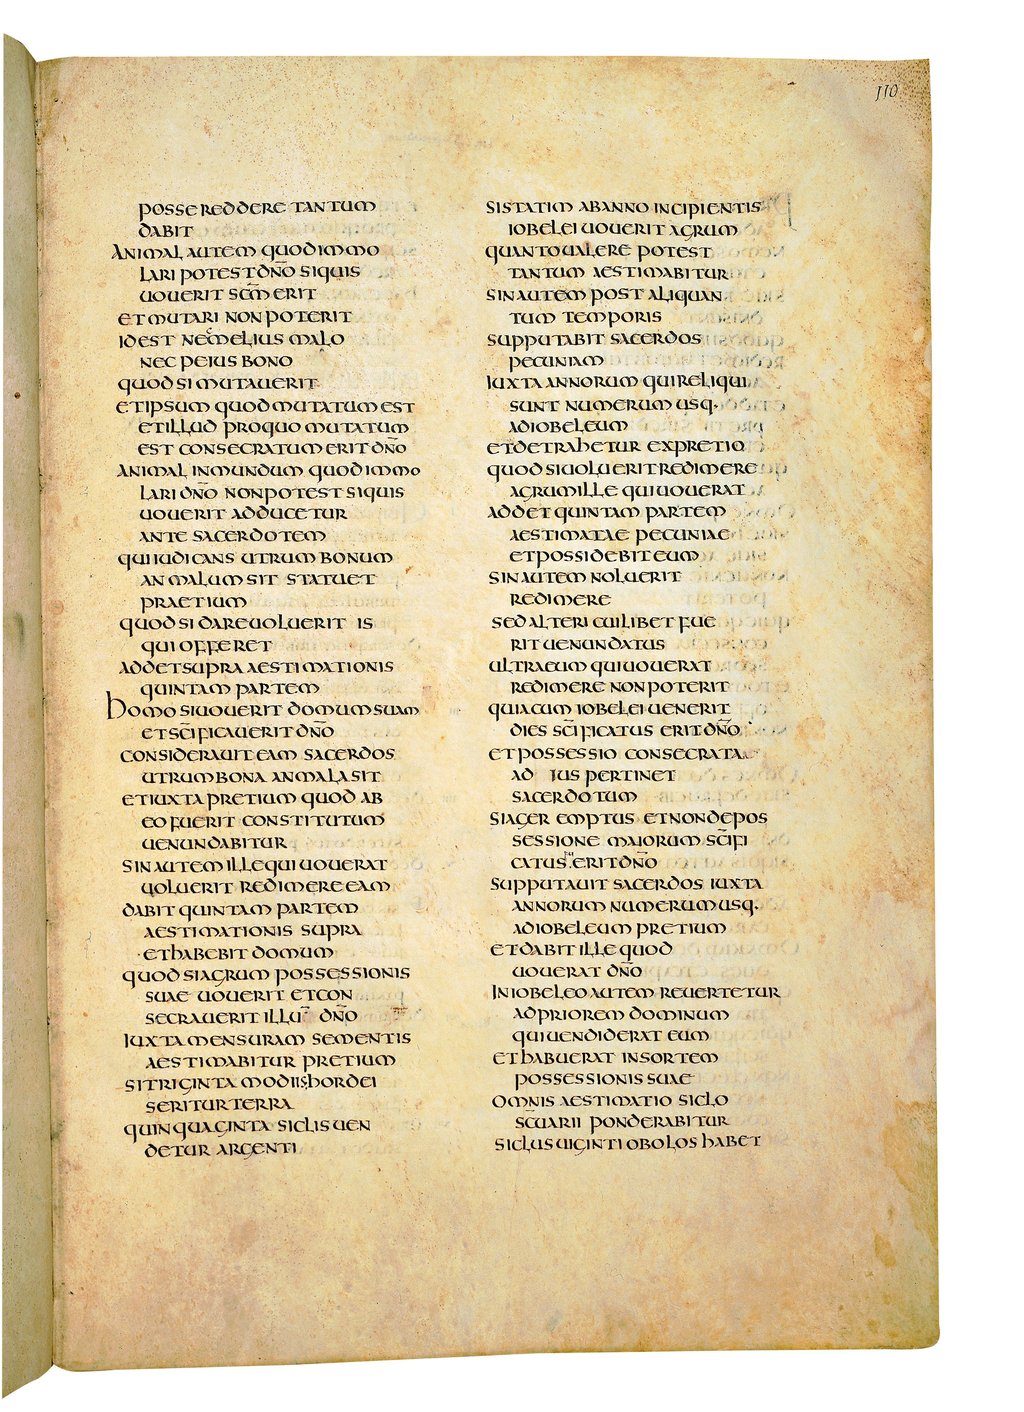 110
posse reddere tantum
dabit
Animal autem quod immo
lari potest dn̄o siquis
uouerit sc̄m erit
et mutari non poterit
id est nec melius malo
nec peius bono
quod si mutauerit
et ipsum quod mutatum est
et illud pro quo mutatum
est consecratum erit dn̄o
animal inmundum quod immo
lari dn̄o non potest siquis
uouerit adducetur
ante sacerdotem
qui iudicans utrum bonum
an malum sit statuet
praetium
quod si dare uoluerit is
qui offeret
addet supra aestimationis
quintam partem
homo si uouerit domum suam
et sc̄ificauerit dn̄o
considerauit eam sacerdos
utrum bona an mala sit
et iuxta pretium quod ab
eo fuerit constitutum
uenundabitur
sin autem ille qui uouerat
uoluerit redimere eam
dabit quintam partem
aestimationis supra
et habebit domum
quod si agrum possessionis
suae uouerit et con
secrauerit illū dn̄o
iuxta mensuram sementis
aestimabitur pretium
si triginta modiis hordei
seritur terra
quinquaginta siclis uen
detur argenti
si statim ab anno incipientis
iobelei uouerit agrum
quanto ualere potest
tantum aestimabitur
sin autem post aliquan
tum temporis
supputabit sacerdos
pecuniam
iuxta annorum qui reliqui
sunt numerum usq.
ad iobeleum
et detrahetur ex pretio
quod si uoluerit redimere
agrum ille qui uouerat
addet quintam partem
aestimatae pecuniae
et possidebit eum
sin autem noluerit
redimere
sed alteri cuilibet fue
rit uenundatus
ultra eum qui uouerat
redimere non poterit
quia cum iobelei uenerit
dies sc̄ificatus erit dn̄o
et possessio consecrata
ad ius pertinet
sacerdotum
si ager emptus et non de pos
sessione maiorum sc̄ifi
catus erit dn̄o
supputauit sacerdos iuxta
annorum numerum usq.
ad iobeleum pretium
et dabit ille quod
uouerat dn̄o
in iobeleo autem reuertetur
ad priorem dominum
qui uendiderat eum
et habuerat in sortem
possessionis suae
omnis aestimatio siclo
sc̄uarii ponderabitur
siclus uiginti obolos habet